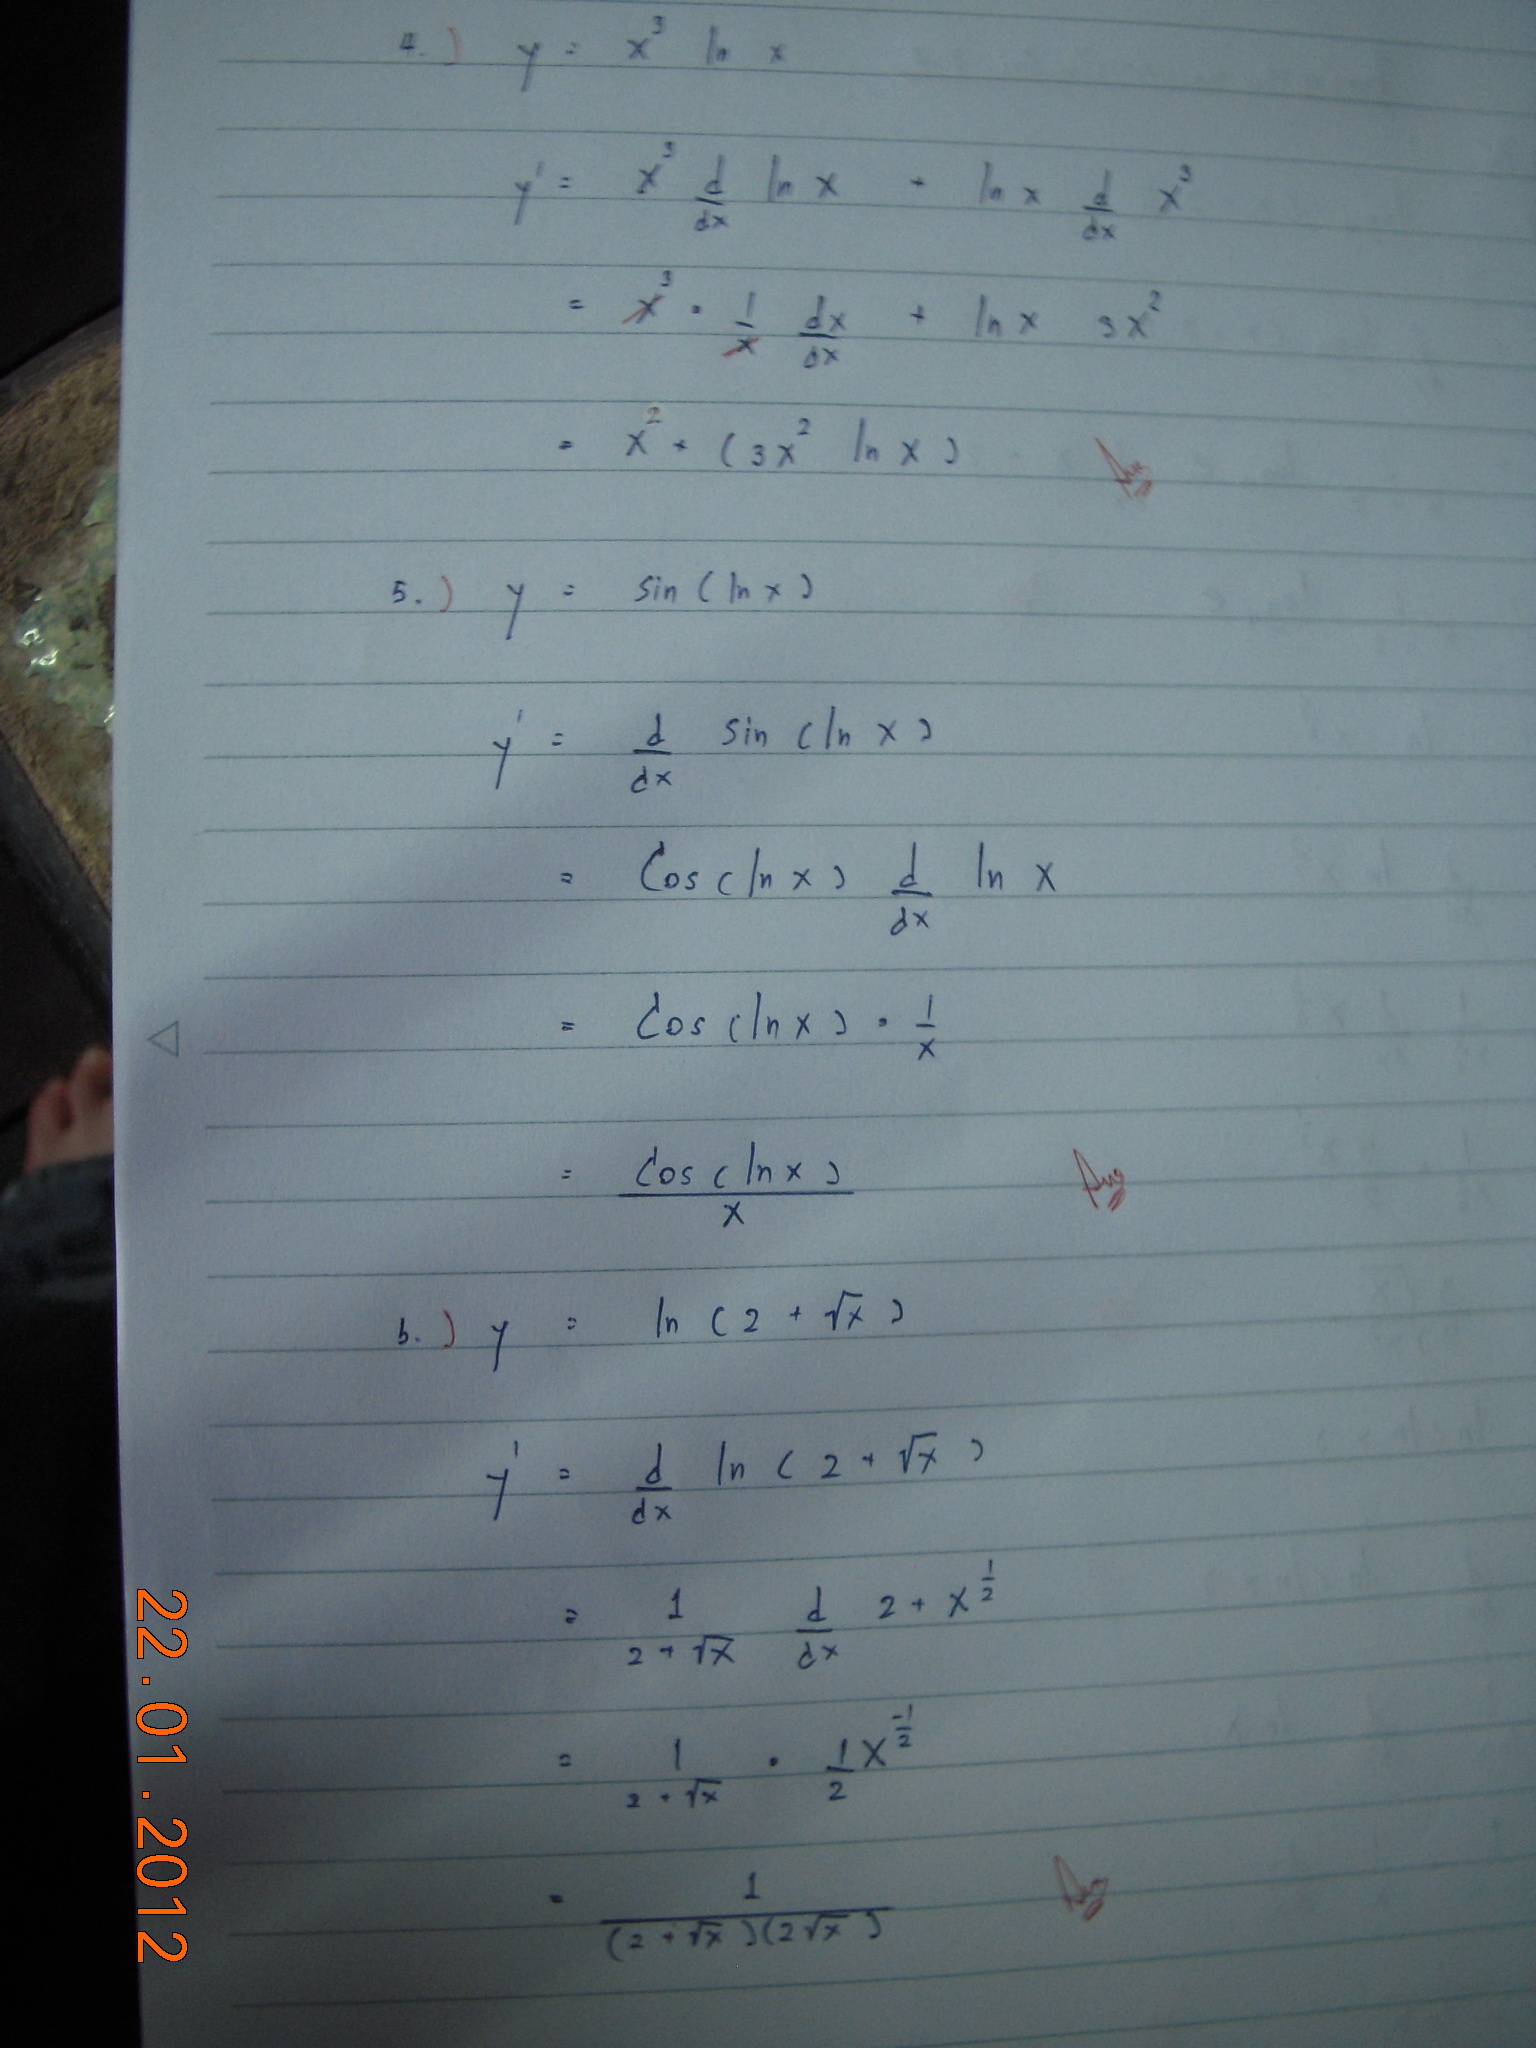 4.) y = x³ ln x
y' = x³ d/dx ln x + ln x d/dx x³
= x³ · 1/x dx/dx + ln x 3x²
= x² + (3x² ln x) Ans
5.) y = sin (ln x)
y' = d/dx sin (ln x)
= Cos (ln x) d/dx ln x
= Cos (ln x) · 1/x
= Cos (ln x) / x Ans
6.) y = ln (2 + √x)
y' = d/dx ln (2 + √x)
= 1/(2 + √x) d/dx 2 + x^(1/2)
= 1/(2 + √x) · 1/2 x^(-1/2)
= 1/((2 + √x)(2√x)) Ans
22.01.2012